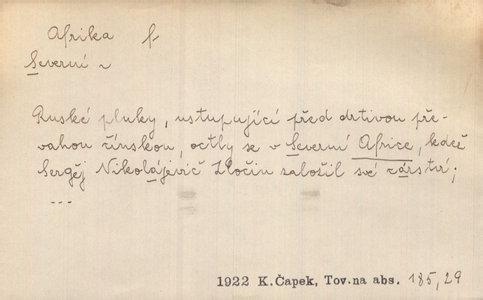 Afrika f.
Severní ~
Ruské pluky, ustupující před drtivou pře-
vahou čínskou, octly se v Severní Africe, kdež
Sergěj Nikolájevič Zločin založil své carství;
---
1922 K.Čapek, Tov.na abs. 185,29